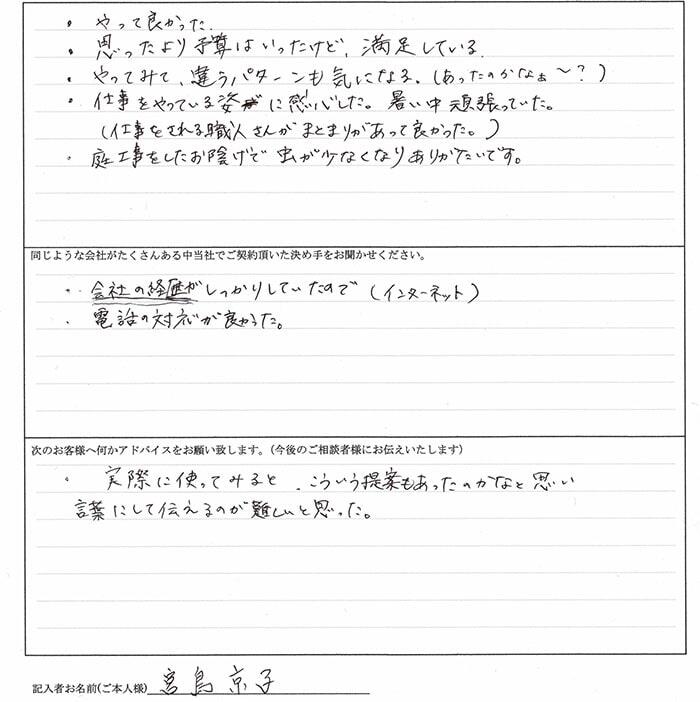 ・ やって良かった.
・ 思ったより予算はいったけど、満足している.
・ やってみて、違うパターンも気になる.(あったのかなぁ〜?)
・ 仕事をやっている姿に感心した。暑い中頑張っていた。
(仕事をされる職人さんがまとまりがあって良かった。)
・ 庭工事をしたお陰げで虫が少なくなりありがたいです。
同じような会社がたくさんある中当社でご契約頂いた決め手をお聞かせください。
・ 会社の経歴がしっかりしていたので(インターネット)
・ 電話の対応が良かった。
次のお客様へ何かアドバイスをお願い致します。(今後のご相談者様にお伝えいたします)
・ 実際に使ってみると、こういう提案もあったのかなと思い
言葉にして伝えるのが難しいと思った。
記入者お名前(ご本人様) 宮島京子